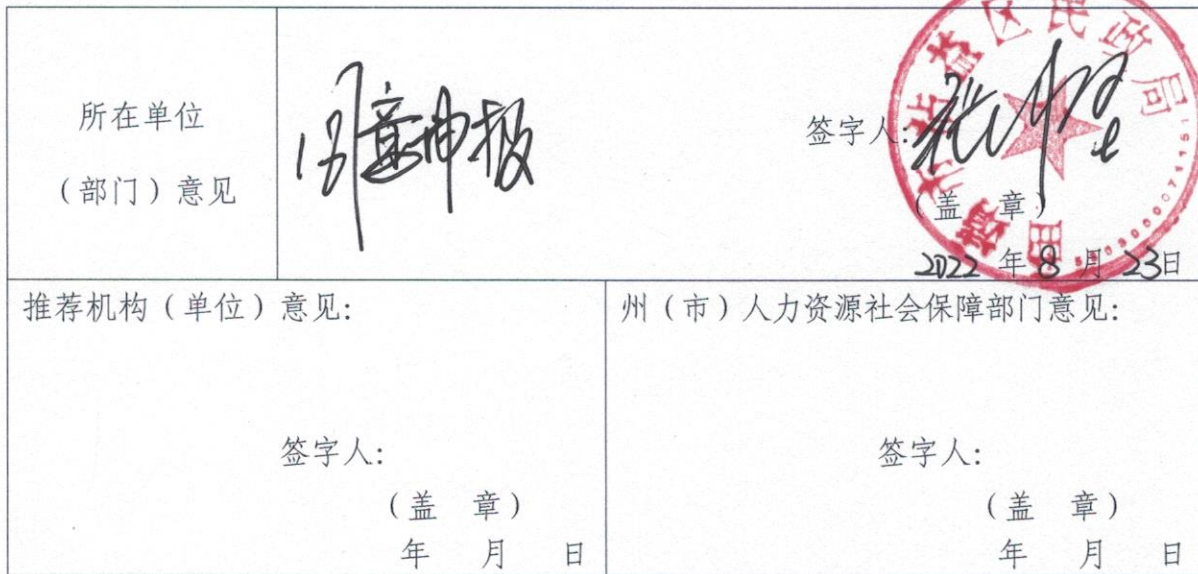 曲靖市沾益区民政局
所在单位
（部门）意见
同意申报
签字人:
（盖 章）
2022 年 8 月 23日
推荐机构（单位）意见:
签字人:
（盖 章）
年 月 日
州（市）人力资源社会保障部门意见:
签字人:
（盖 章）
年 月 日